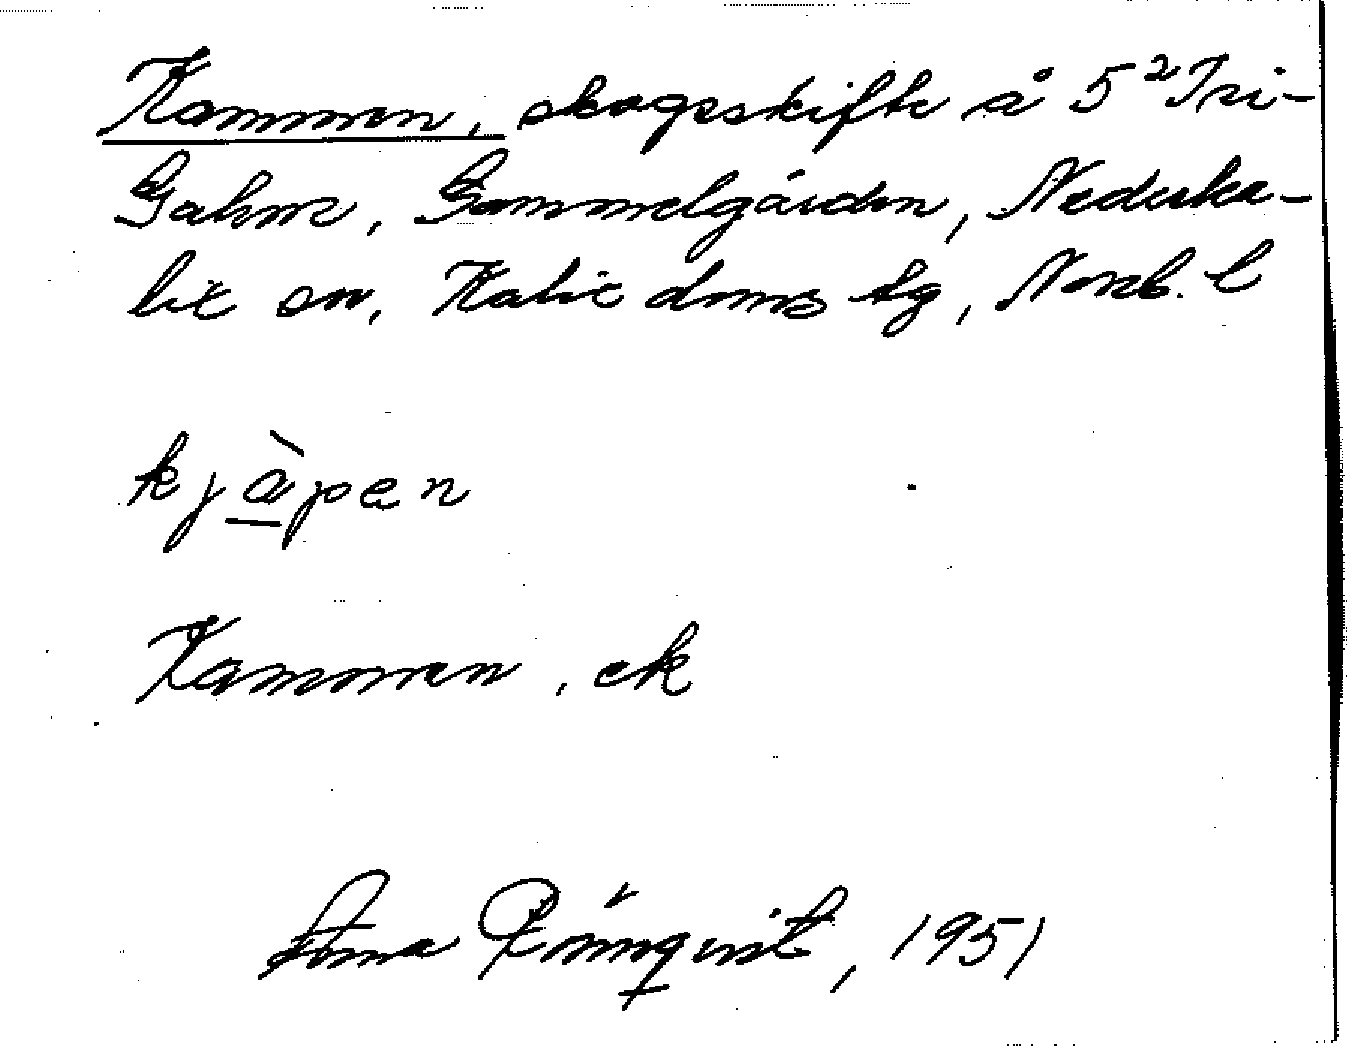 Kammen, skogsskifte å 5² Tri-
Gahm, Gammelgården, Nederka-
lix sn, Kalix doms tg, Norrb. l
kjàpen
Kammen, ek
Rönnqvist, 1951